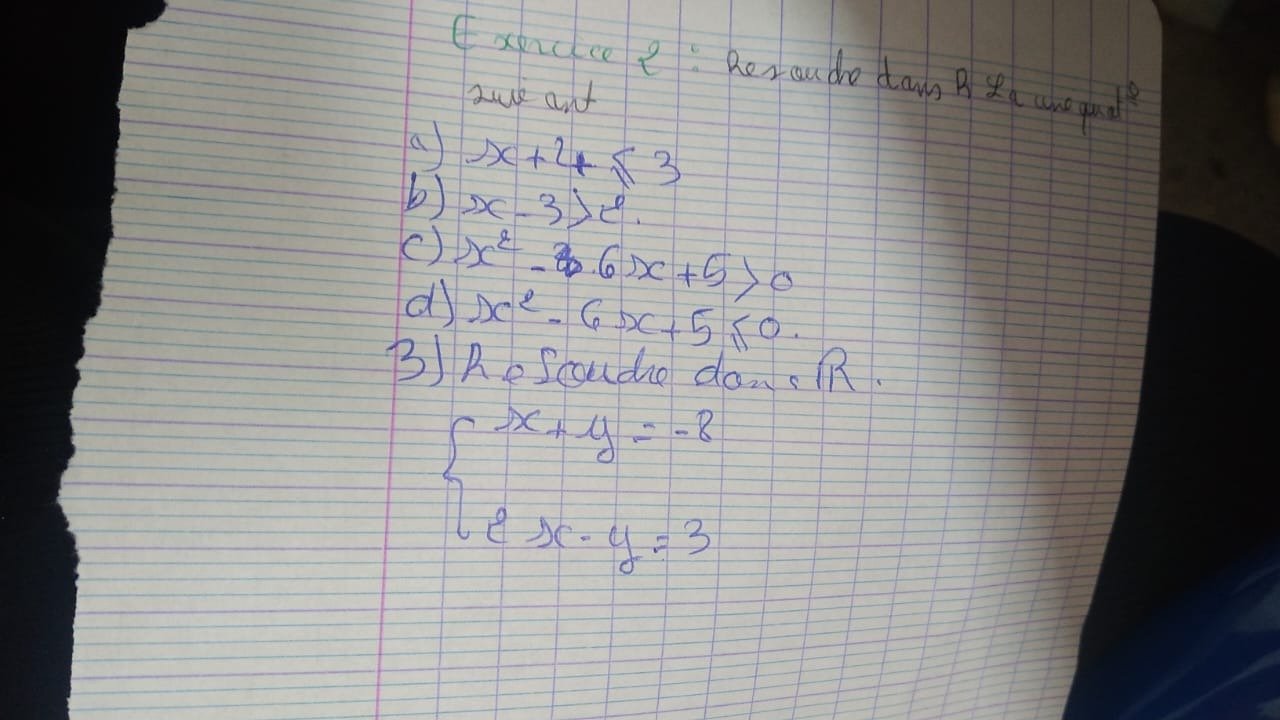 Exercice 2 : Resoudre dans R La inequat°
suivant
a) x + 2 ≤ 3
b) x - 3 > 2.
c) x² - 6x + 5 > 0
d) x² - 6x + 5 ≤ 0.
3) Resoudre dans R.
{ x + y = -8
2x - y = 3